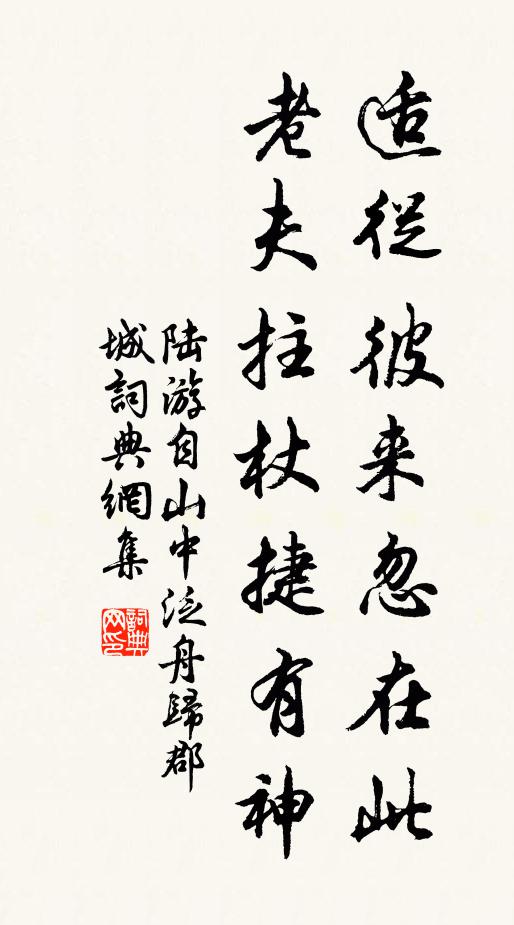 适從彼来忽在此
老夫拄杖捷有神
陆游自山中泛舟歸郡
城詞典網集
詞典
网印